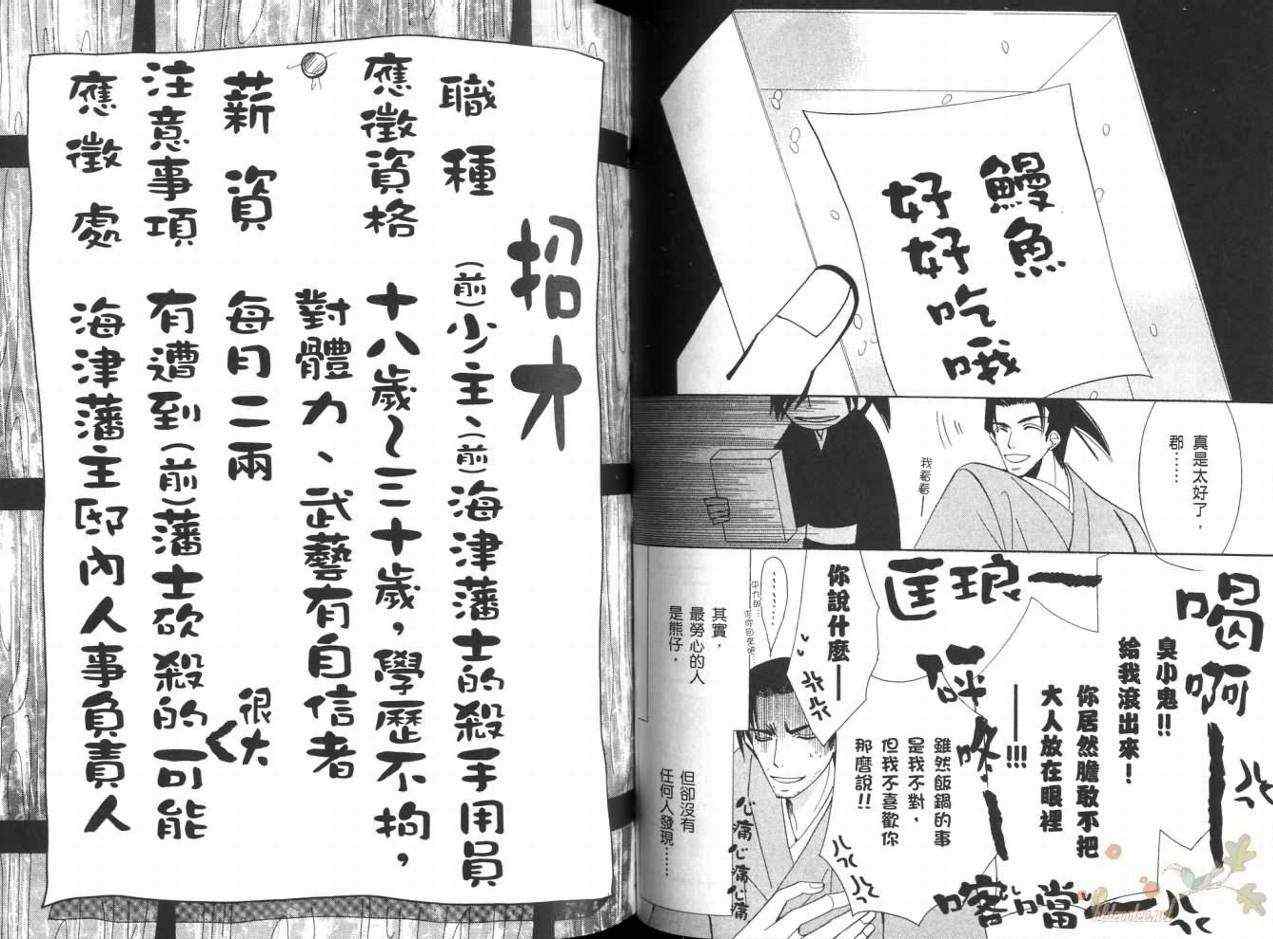 鰻魚
好好吃哦
真是太好了，
郡……
我看看
喝啊——
臭小鬼!!
給我滾出來！
你居然膽敢不把
大人放在眼裡
——!!!
匡琅—
砰咚—
喀噹—
雖然飯鍋的事
是我不對，
但我不喜歡你
那麼說!!
你說什麼——
心痛心痛心痛
其實，
最勞心的人
是熊仔，
但卻沒有
任何人發現……
招才
職種
(前)少主、(前)海津藩士的殺手用員
應徵資格
十八歲～三十歲，學歷不拘，
對體力、武藝有自信者
薪資
每月二兩
注意事項
有遭到(前)藩士砍殺的可能
很大
應徵處
海津藩主邸內人事負責人